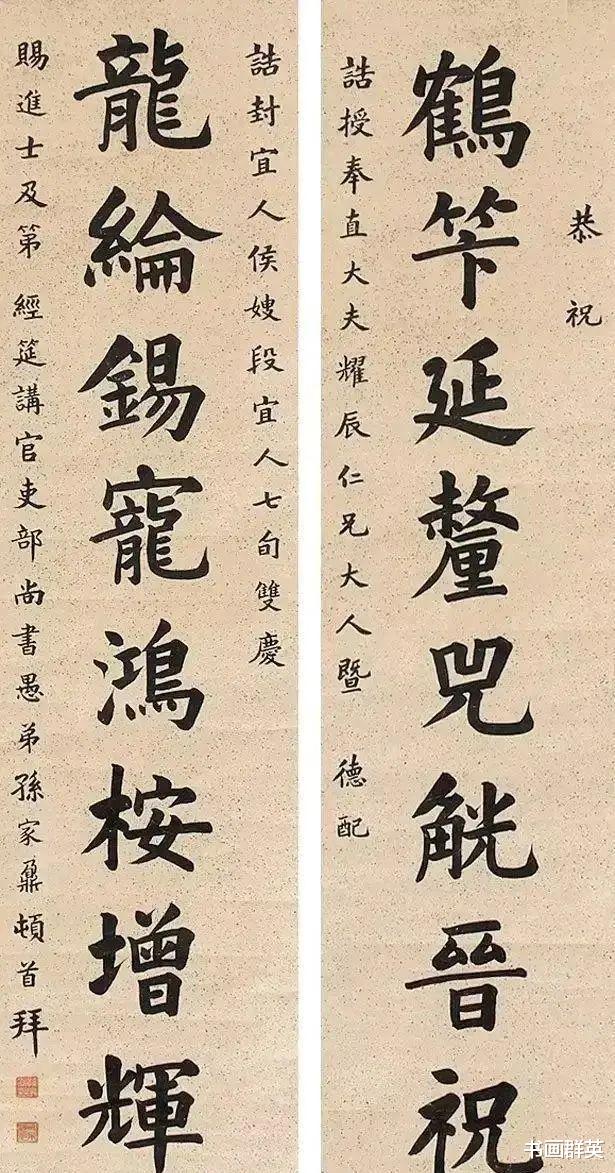 恭祝
鶴笇延釐兕觥晉祝
誥授奉直大夫耀辰仁兄大人暨 德配
誥封宜人侯嫂段宜人七旬雙慶
龍綸錫寵鴻桉增輝
賜進士及第 經筵講官吏部尚書愚弟孫家鼐頓首拜
书画群英